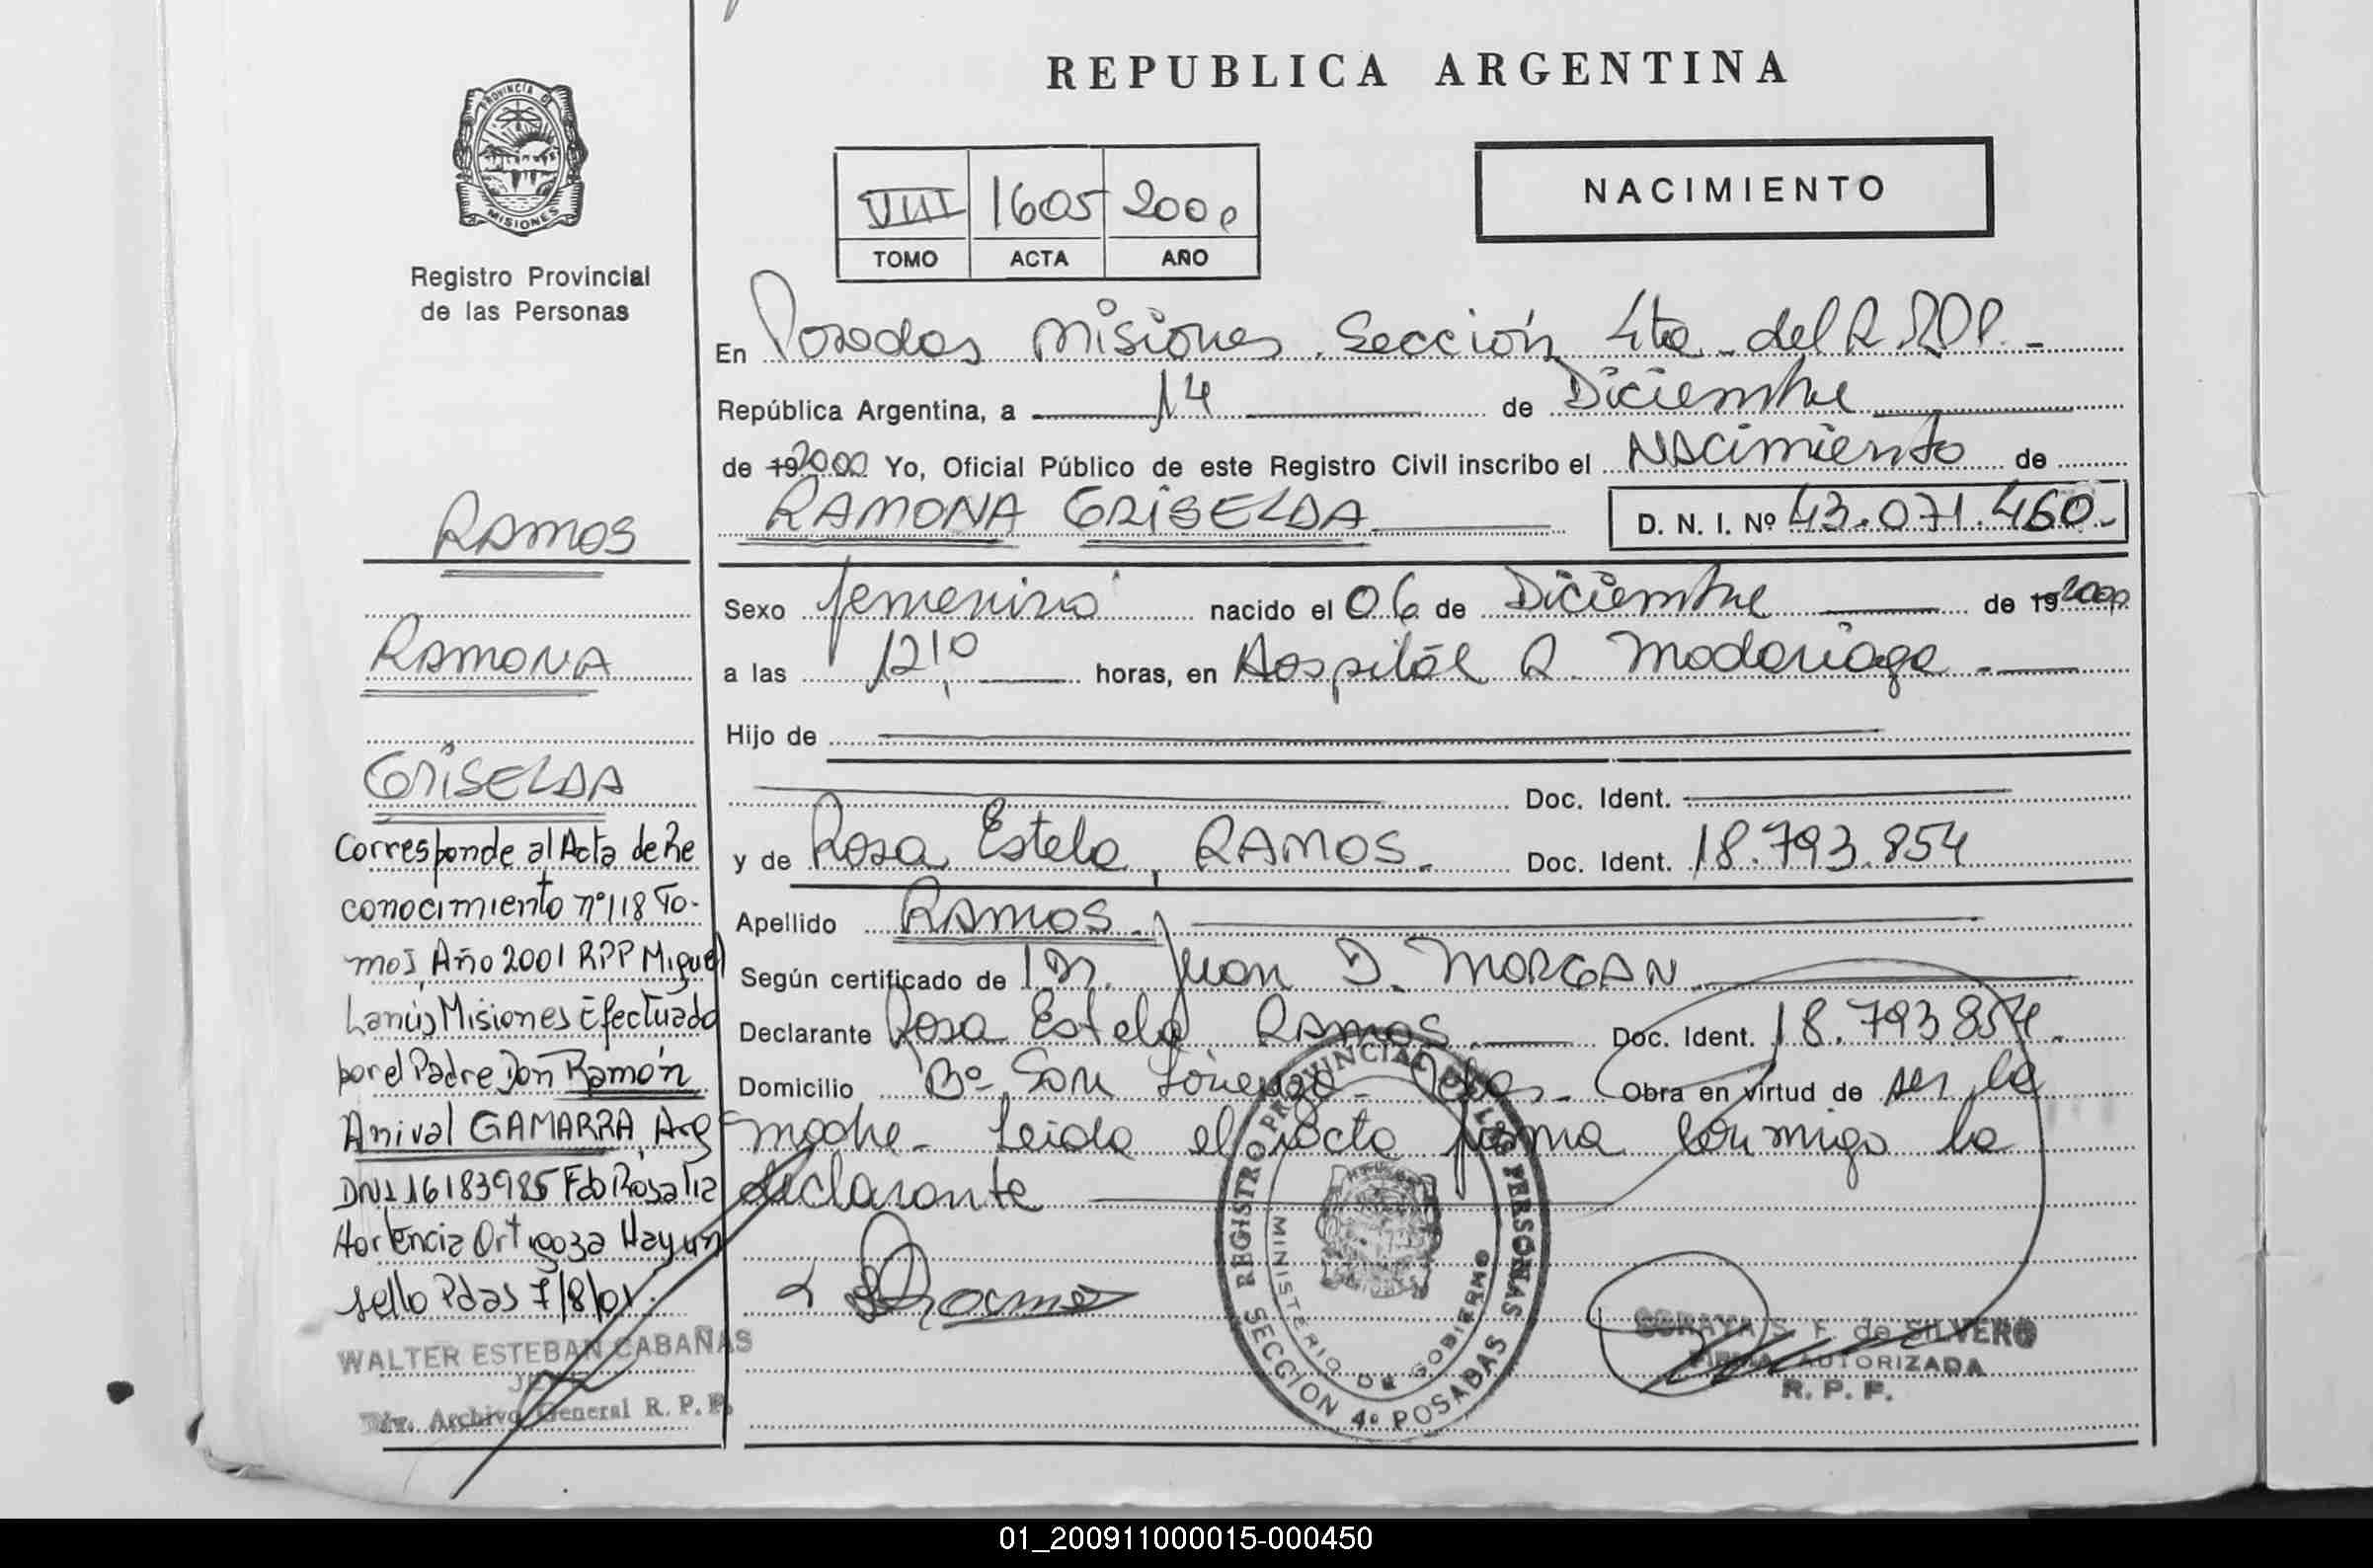 REPUBLICA ARGENTINA
PROVINCIA DE
MISIONES
Registro Provincial
de las Personas
VIII 1605 2000
TOMO ACTA AÑO
NACIMIENTO
En Posadas Misiones. Sección 4ta del R.P.P.
República Argentina, a 14 de Diciembre
de 19 2000 Yo, Oficial Público de este Registro Civil inscribo el Nacimiento de
RAMONA GRISELDA D. N. I. Nº 43.071.460.-
Sexo femenino nacido el 06 de Diciembre de 19 2000
a las 12,10 horas, en Hospital R. Madariaga.-
Hijo de
Doc. Ident.
y de Rosa Estela, RAMOS.- Doc. Ident. 18.793.854
Apellido RAMOS.-
Según certificado de Dr. Juan D. MORGAN
Declarante Rosa Estela RAMOS.- Doc. Ident. 18.793.854.
Domicilio Bº San Lorenzo- Pdas.- Obra en virtud de ser la
madre- Leida el Acta firma conmigo la
declarante
RAMOS
RAMONA
GRISELDA
Corresponde al Acta de Re
conocimiento nº 118 To-
mo I Año 2001 RPP Miguel
Lanús Misiones Efectuado
por el Padre Don Ramón
Anival GAMARRA, Arg
DNI 16183985 Fdo Rosalia
Hortencia Ortigoza Hay un
sello Pdas 7/8/01.
WALTER ESTEBAN CABAÑAS
JEFE
Div. Archivo General R. P. P.
REGISTRO PROVINCIAL DE LAS PERSONAS
MINISTERIO DE GOBIERNO
SECCION 4º POSADAS
SORAYA S. F. de SILVERO
FIRMA AUTORIZADA
R. P. P.
01_200911000015-000450